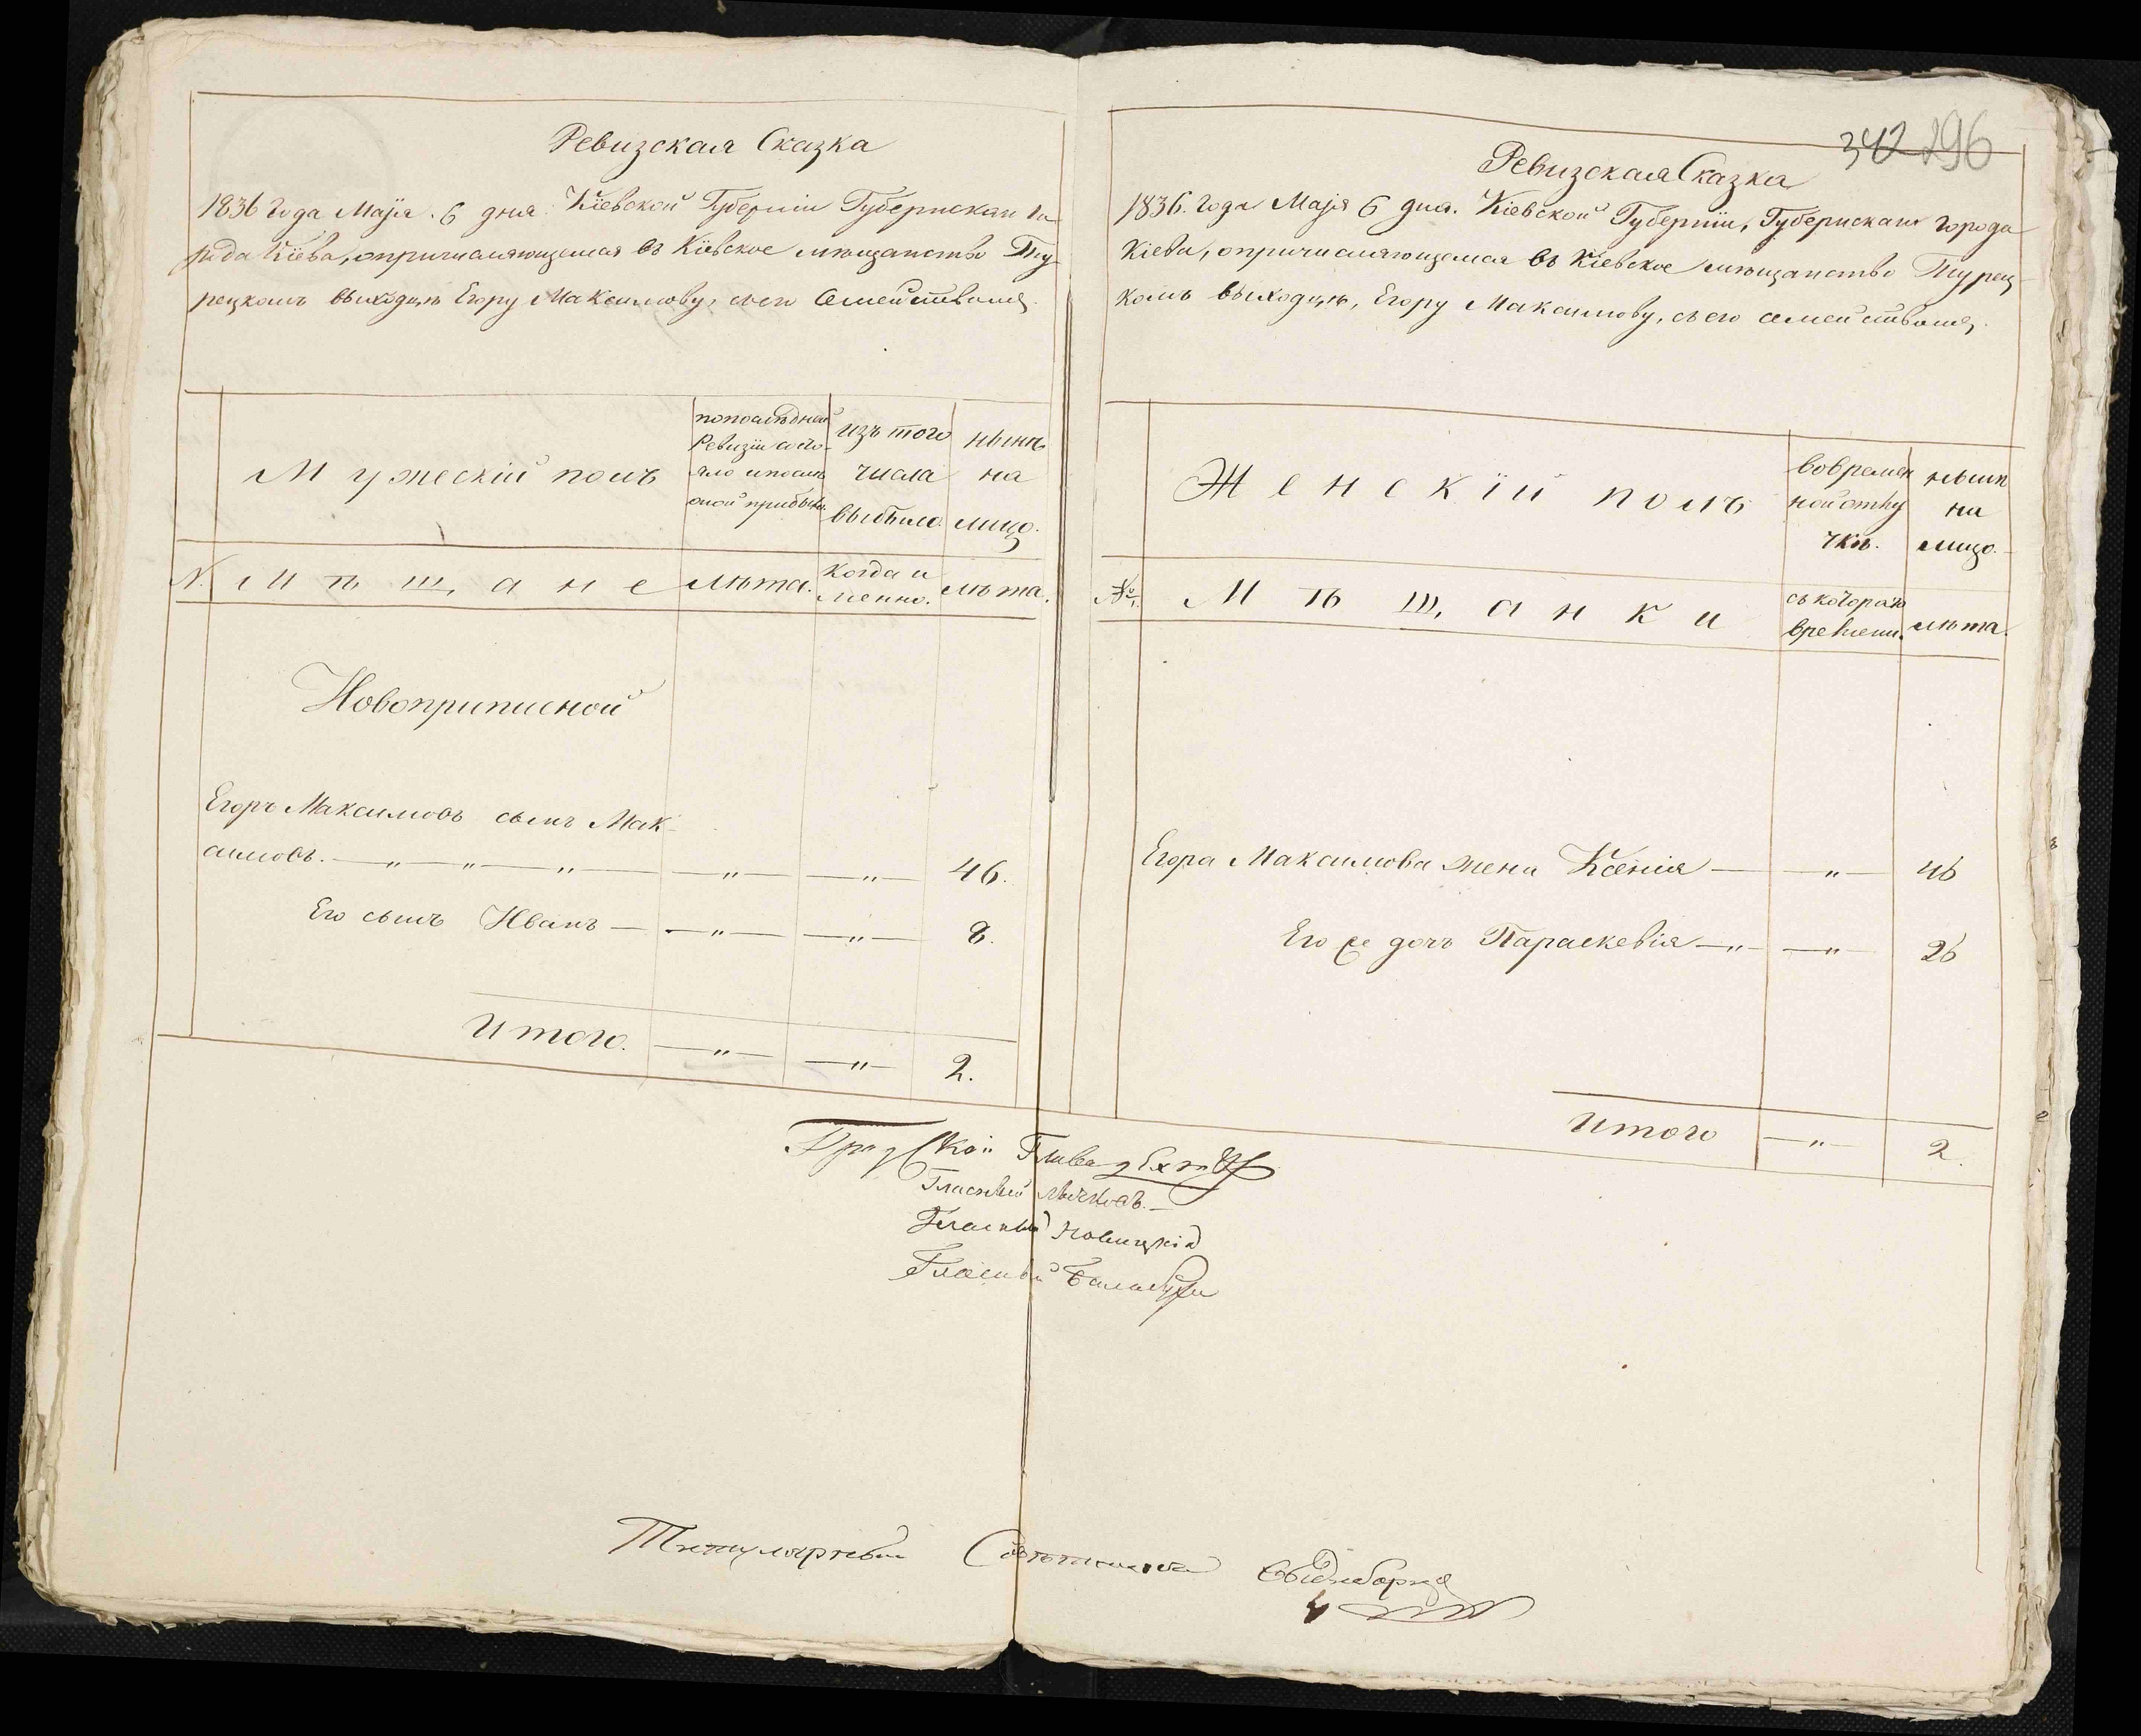 Ревизская Сказка
1836 Года Маїя 6 дня Кіевской Губерніи Губернскаго Го
рода Кіева, опричисляющемся въ Кіевское мѣщанство Ту
рецкомъ выходцѣ Егору Максимову, съ его Семействомъ
мужескій полъ
попослѣдней
Ревизіи состо-
яло ипослѣ
оной прибыло
изъ того
числа
выбыло.
нынѣ
на
лицо.
№ мѣщане
лѣта.
когда и
менно.
лѣта.
Новоприписной
Егоръ Максимовъ сынъ Мак-
симовъ. — „ — „ — „ — „ — „ — 46.
Его сынъ Иванъ — „ — „ — 8.
Итого. — „ — „ — 2.
342 296
Ревизская Сказка
1836. Года Маїя 6 дня. Кіевской Губерніи, Губернскаго города
Кіева, опричисляющемся въ Кіевское мѣщанство Турец-
комъ выходцѣ, Егору Максимову, съ его семействомъ,
Женскїй полъ
вовремен
ной отлу
чкѣ.
нынѣ
на
лицо.
№ Мѣщанки
съ котораго
времени.
лѣта.
Егора Максимова жена Ксенія — „ — 46
Его же дочъ Параскевія — „ — „ — 26
Итого — „ — 2.
Градской Глава
Гласный
Гласный Новицкій
Гласный Балабуха
Титулярный Совѣтникъ